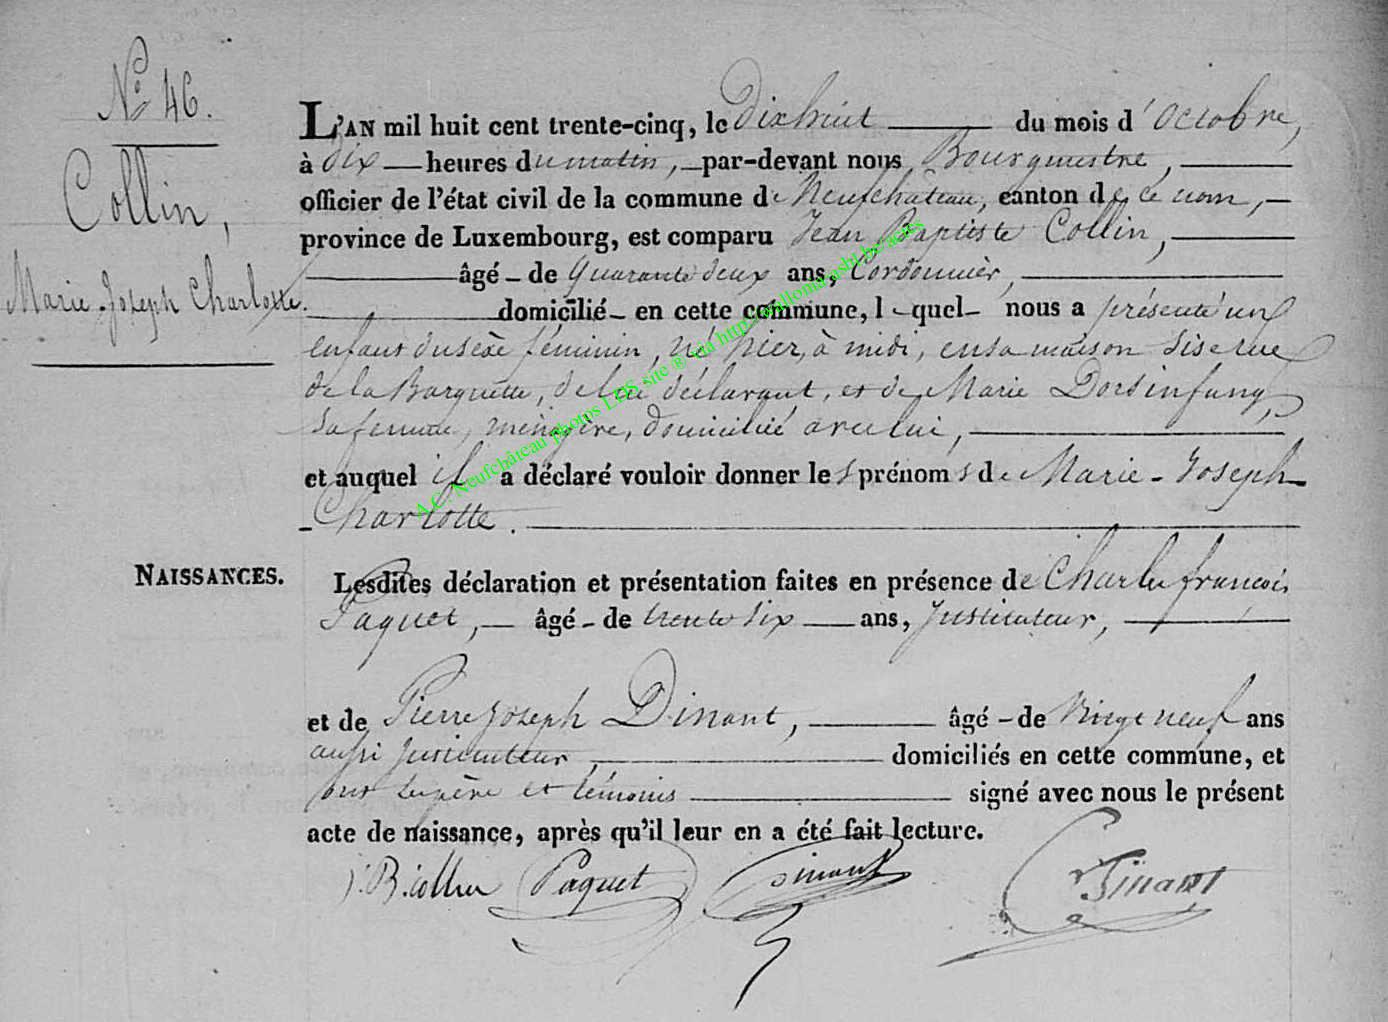 N° 46.
Collin,
Marie-Joseph Charlotte.
L'AN mil huit cent trente-cinq, le Dixhuit du mois d'Octobre,
à dix heures du matin, par-devant nous Bourgmestre,
officier de l'état civil de la commune de Neufchâteau, canton de ce nom,
province de Luxembourg, est comparu Jean Baptiste Collin,
âgé de quarante deux ans, Cordonnier,
domicilié en cette commune, lequel nous a présenté un
enfant du sexe féminin, né hier, à midi, en sa maison sise rue
de la Barquette, de lui déclarant, et de Marie Dorsinfang,
sa femme, ménagère, domicilié avec lui,
et auquel il a déclaré vouloir donner les prénoms de Marie-Joseph
Charlotte.
NAISSANCES.
Lesdites déclaration et présentation faites en présence de Charles françois
Paquet, âgé de trente six ans, Instituteur,
et de Pierre Joseph Dinant, âgé de Vingt neuf ans
aussi Instituteur, domiciliés en cette commune, et
ont le père et témoins signé avec nous le présent
acte de naissance, après qu'il leur en a été fait lecture.
J.B. Collin Paquet Dinant
A.C. Neufchâteau photos LDS site ® via http://